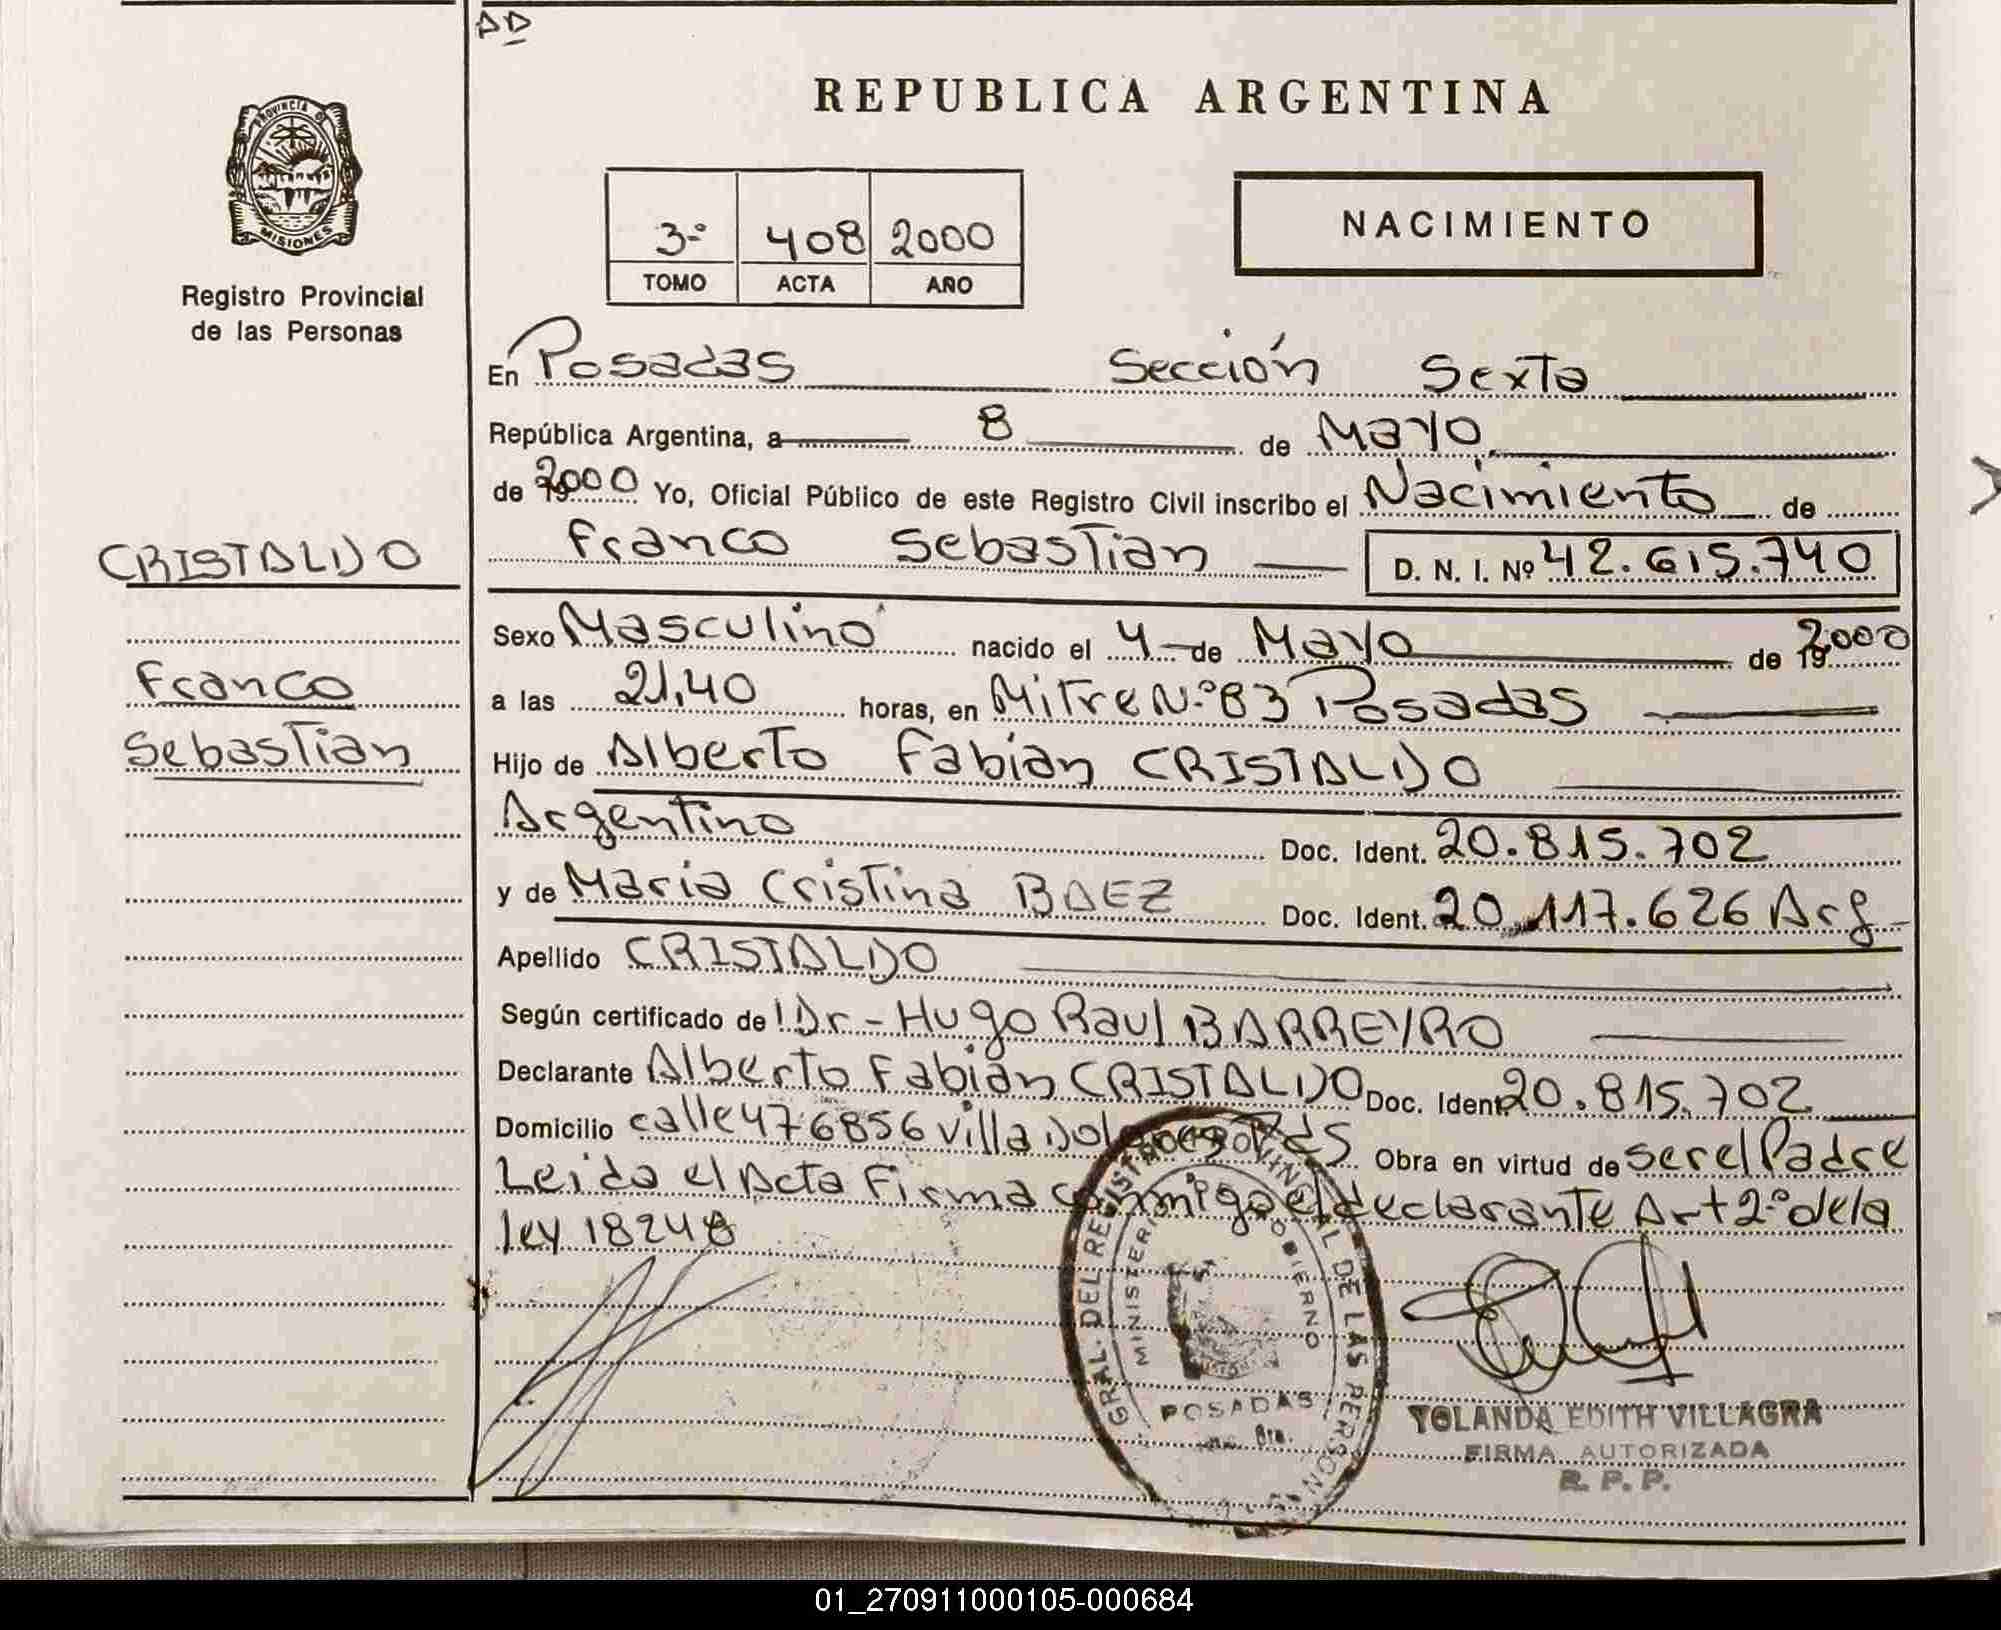 DD
REPUBLICA ARGENTINA
PROVINCIA D
MISIONES
Registro Provincial
de las Personas
3º 408 2000
TOMO ACTA AÑO
NACIMIENTO
En Posadas Sección Sexta
República Argentina, a 8 de Mayo
de 2000 Yo, Oficial Público de este Registro Civil inscribo el Nacimiento de
CRISTALDO
Franco
Sebastian
Franco Sebastian D. N. I. Nº 42.615.740
Sexo Masculino nacido el 4 de Mayo de 2000
a las 21,40 horas, en Mitre Nº 83 Posadas
Hijo de Alberto Fabián CRISTALDO
Argentino Doc. Ident. 20.815.702
y de María Cristina BAEZ Doc. Ident. 20.117.626 Arg
Apellido CRISTALDO
Según certificado de Dr - Hugo Raul BARREYRO
Declarante Alberto Fabián CRISTALDO Doc. Ident. 20.815.702
Domicilio calle 47 6856 villa Dolores Pdas Obra en virtud de ser el Padre
Leida el Acta Firma conmigo el declarante Art 2º de la
ley 18248
GRAL. DEL REGISTRO PROVINCIAL DE LAS PERSON
MINISTERIO GOBIERNO
POSADAS
YOLANDA EDITH VILLAGRA
FIRMA AUTORIZADA
R. P. P.
01_270911000105-000684